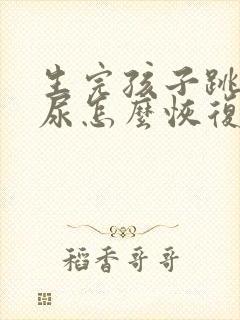 生完孩子跳
尿怎麼恢復
稻香哥哥